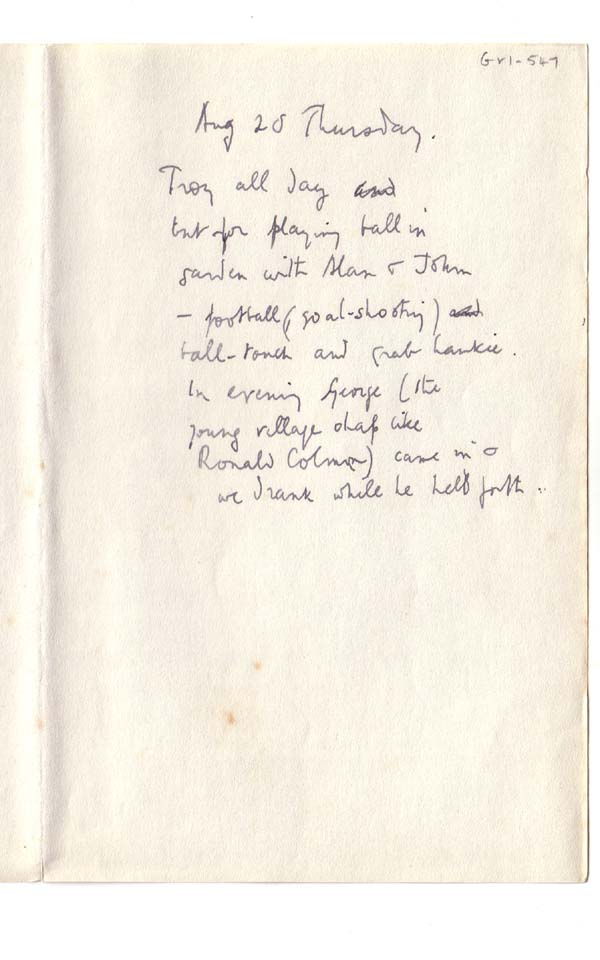 Gr1-547
Aug 20 Thursday.
Troy all day and
but for playing ball in
garden with Alan & John
- football (goal-shooting) and
ball-touch and grab hankie.
In evening George (the
young village chap like
Ronald Colman) came in &
we drank while he held forth ..